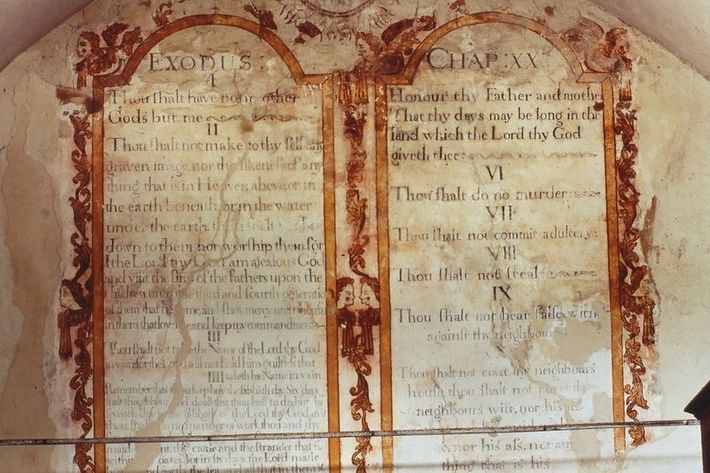 EXODUS:
I
Thou shalt have none other
Gods but me
II
Thou shalt not make to thy self any
graven image, nor the likeness of any
thing that is in Heaven above, or in
the earth beneath, or in the water
under the earth, thou shalt
down to them nor worship them for
I the Lord thy God am a jealous God
and visit the sins of the fathers upon the
children unto the third and fourth generation
of them that hate me, and shew mercy unto thousands
in them that love me and keep my commandments
III
Thou shalt not take the Name of the Lord thy God
in vain for the Lord will not hold him guiltless that
IIII taketh his Name in vain
Remember that thou keep holy the sabbath day, Six days
shalt thou labour and do all that thou hast to do, but the
seventh day is the sabbath of the Lord thy God in it
thou shalt do no manner of work, thou and thy
maid cattle and the stranger that is
gates, for in six days the Lord made
CHAP: XX
Honour thy Father and mother
that thy days may be long in the
land which the Lord thy God
giveth thee:
VI
Thou shalt do no murder:
VII
Thou shalt not commit adultery:
VIII
Thou shalt not steal:
IX
Thou shalt not bear false witn
against thy neighbour
Thou shalt not covet thy neighbours
house, thou shalt not covet thy
neighbours wife, nor his
nor his ass, nor any
thing that is his